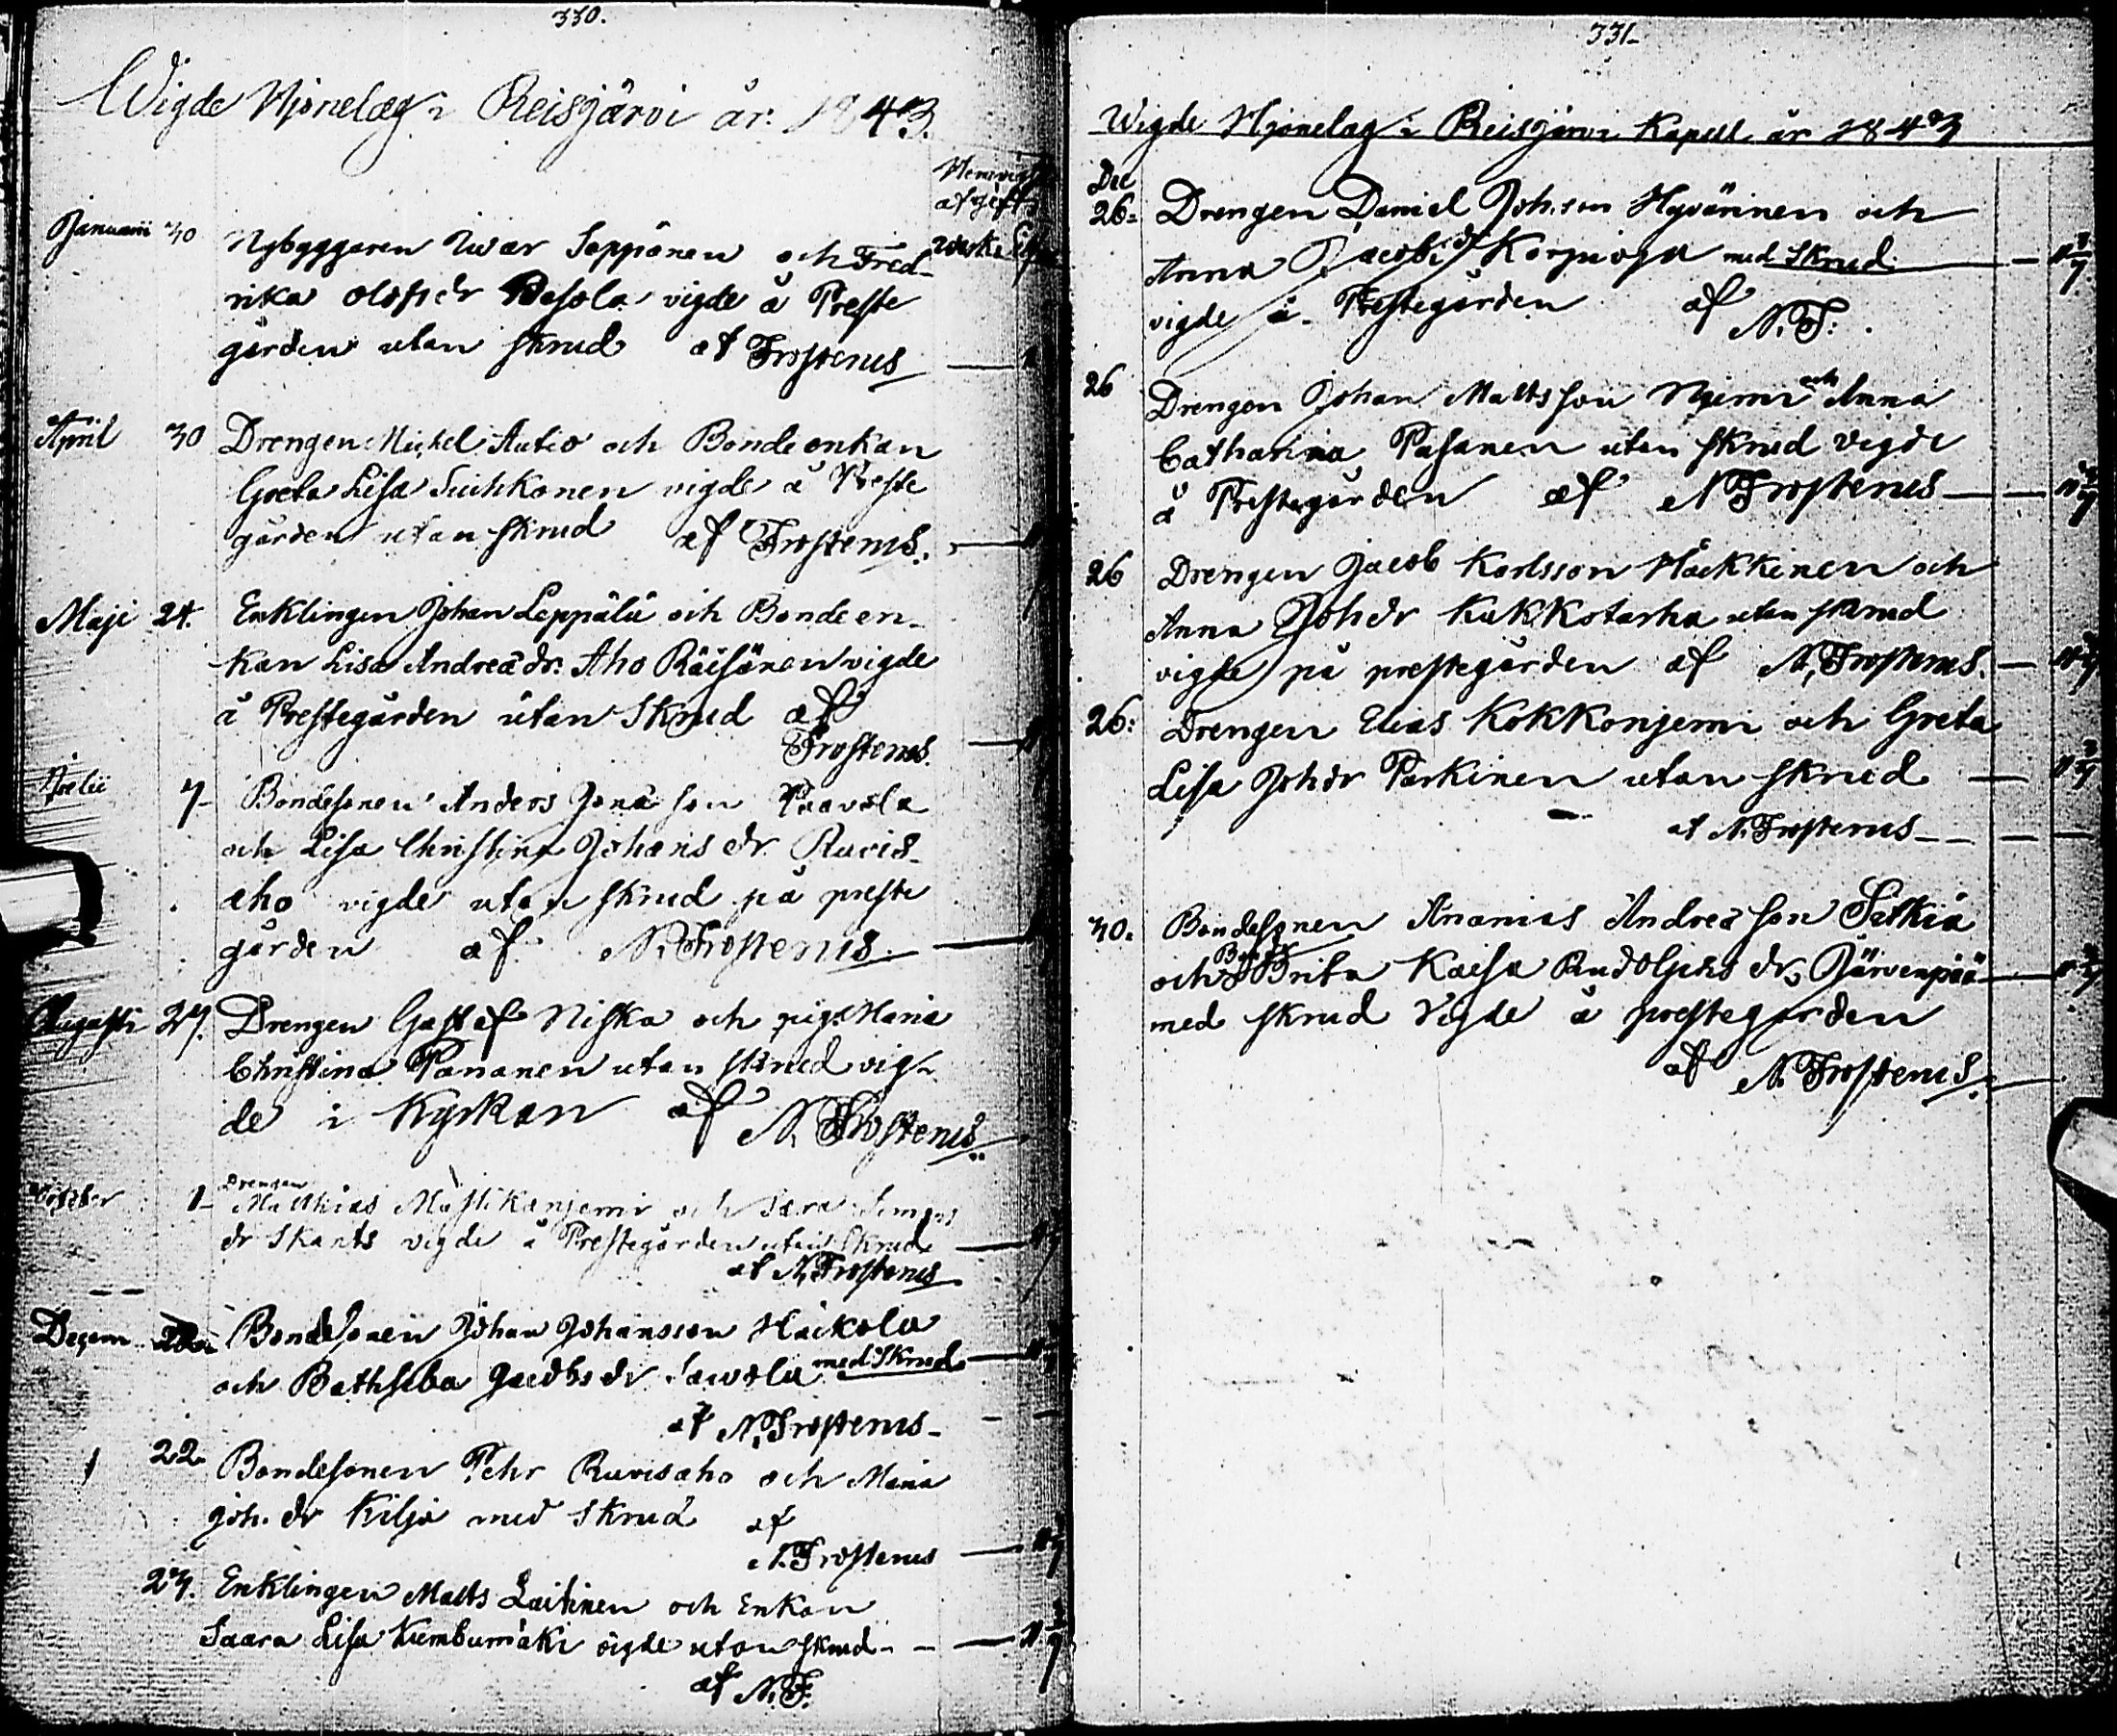 330.
Wigde Hjonelag i Reisjärvi år. 1843.
Januarii 30 Nybyggaren Iwar Seppänen och Fred-
rika Olofs dr Pasola vigde å Preste
gården utan skrud af Frosterus
April 30 Drengen Michel Autio och Bonde enkan
Greta Lisa Tuihkonen vigde å Preste
gården utan skrud af Frosterus.
Maji 24. Enklingen Johan Leppälä och Bonde en-
kan Lisa Andreä dr. Aho Räisänen vigde
å Prestegården utan Skrud af
Frosterus.
7 Bondesonen Anders Jonä son Paavola
och Lisa Christina Johans dr. Ruvis-
aho vigde utan skrud på preste
gården af N. Frosterus.
Augusti 27. Drengen Gustaf Niska och pig. Maria
Christina Pananen utan skrud vig-
de i Kyrkan af N. Frosterus
October 1 Drengen Matthias Mustikaniemi och Sara Simons
dr Skants vigde å Prestegården utan Skrud
af N. Frosterus
Decem Bondesonen Johan Johansson Häikola
och Bathseba Jacobs dr Sawola med Skrud
af N. Frosterus
22 Bondesonen Pehr Ruvisaho och Maria
Joh. dr Kiljo med Skrud af
N. Frosterus
27. Enklingen Matts Laitinen och Enkan
Saara Lisa Kumbumäki vigde utan skrud
af N. F.
331
Wigde Hjonelag i Reisjärvi Kapell år 1843
Dec
26. Drengen Daniel Joh. son Hyvärinen och
Anna Jacobi dr Korpioja med Skrud
vigde å Prestegården af N. F.
26 Drengen Johan Matts son Njemi och Anna
Catharina Pasanen utan skrud vigde
å Prestegården af N Frosterus
26 Drengen Jacob Karlsson Häkkinen och
Anna Joh dr Kukkotarha utan skrud
vigde på prestegården af N. Frosterus.
26: Drengen Elias Kokkonjemi och Greta
Lisa Joh dr Parkinen utan skrud
af N. Frosterus
30. Bondesonen Ananias Andreä son Satkia
och Brita Kaisa Rudolphs dr Järvenpää
med skrud Vigde å prestegården
af N. Frosterus.